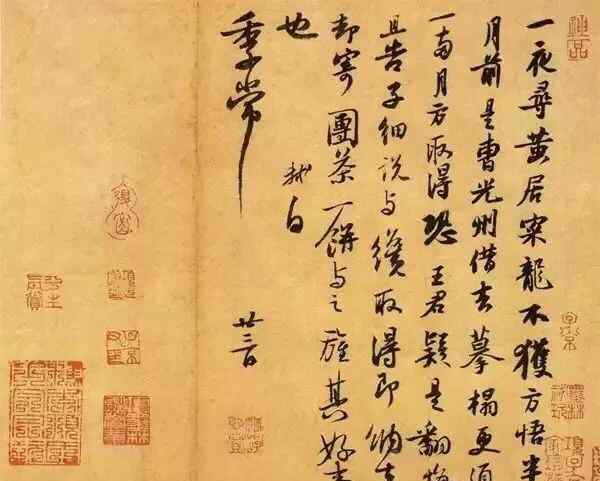 一夜尋黃居寀龍不獲方悟半
月前是曹光州借去摹搨更須
一兩月方取得恐王君疑是翻悔
且告子細說與纔取得即納去
却寄團茶一餅與之旌其好事
也
軾白
季常
廿三日